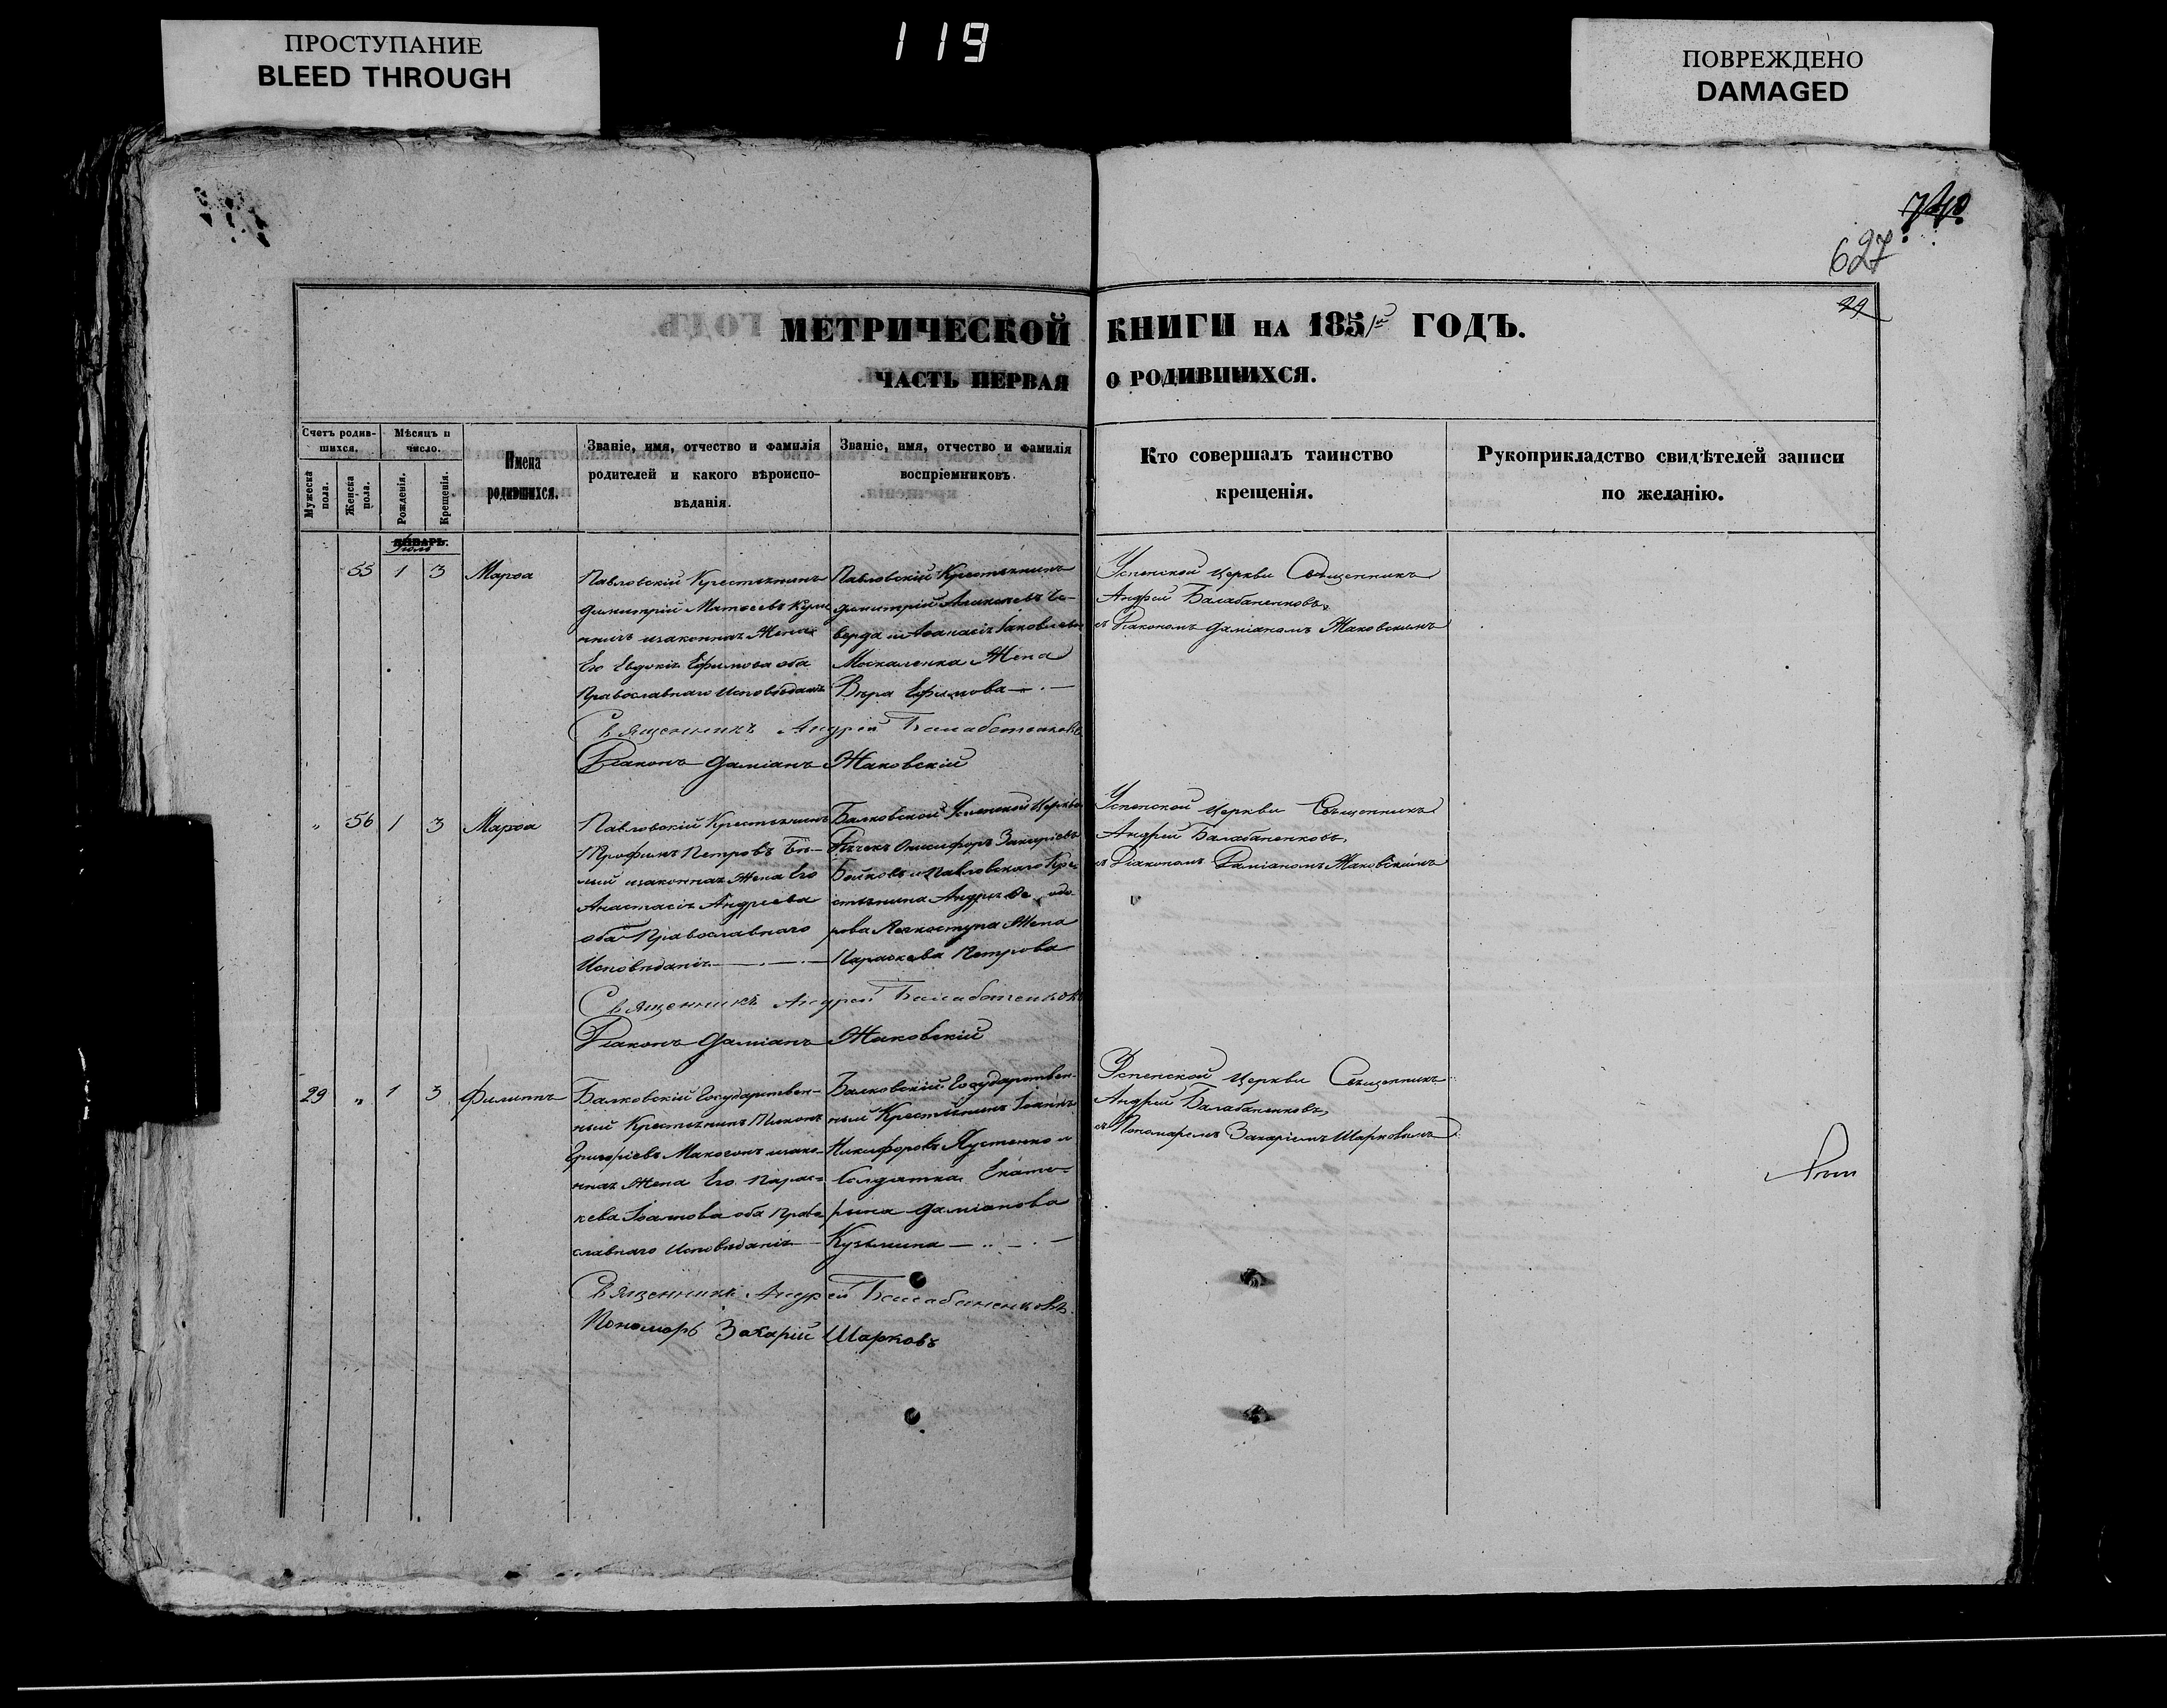 ПРОСТУПАНИЕ
BLEED THROUGH
119
ПОВРЕЖДЕНО
DAMAGED
627
29
МЕТРИЧЕСКОЙ КНИГИ НА 1851й ГОДЪ.
ЧАСТЬ ПЕРВАЯ О РОДИВШИХСЯ.
Счетъ родив-
шихся.
Мужеска пола.
Женска пола.
Мѣсяцъ и
число.
Рожденія.
Крещенія.
Имена
родившихся.
Званіе, имя, отчество и фамилія
родителей и какого вѣроиспо-
вѣданія.
Званіе, имя, отчество и фамилія
воспріемниковъ.
Кто совершалъ таинство
крещенія.
Рукоприкладство свидѣтелей записи
по желанію.
ЯНВАРЬ.
Іюль
55 1 3 Марѳа
Павловскій Крестьянинъ
Димитрій Матѳеевъ
законная Жена
Его Евдокія Ефимова оба
Православнаго Исповѣданія
Павловскій Крестьянинъ
Димитрій Алексѣевъ Че-
верда и Аѳанасія Іаковлева
Москаленка Жена
Вѣра Ефимова
Успенской Церкви Священникъ
Андрей Балабаненковъ,
съ Діакономъ Даміаномъ Жаковскимъ
Священникъ Андрей Балабаненковъ
Діаконъ Даміанъ Жаковскій
" 56 1 3 Марѳа
Павловскій Крестьянинъ
Трофимъ Петровъ Бѣ-
лый законная Жена Его
Анастасія Андреева
оба Православнаго
Исповѣданія
Балковской Успенской Церкви
Онисифоръ Захаріевъ
Бойковъ и Павловскаго Кре-
стьянина Андрея Ѳеодо-
рова Легкоступа Жена
Параскева Петрова
Успенской Церкви Священникъ
Андрей Балабаненковъ,
съ Діакономъ Даміаномъ Жаковскимъ
Священникъ Андрей Балабаненковъ
Діаконъ Даміанъ Жаковскій
29 " 1 3 Филиппъ
Балковскій Государствен-
ный Крестьянинъ
Григоріевъ закон-
ная Жена Его Парас-
кева Іоаннова оба Право
славнаго Исповѣданія
Балковскій Государствен-
ный Крестьянинъ Іоаннъ
Никифоровъ Пустенко и
Солдатка Екате-
рина Даміанова
Кузьмина
Успенской Церкви Священникъ
Андрей Балабаненковъ,
съ Пономаремъ Захаріемъ Шарковымъ
Священникъ Андрей Балабаненковъ
Пономарь Захарій Шарковъ